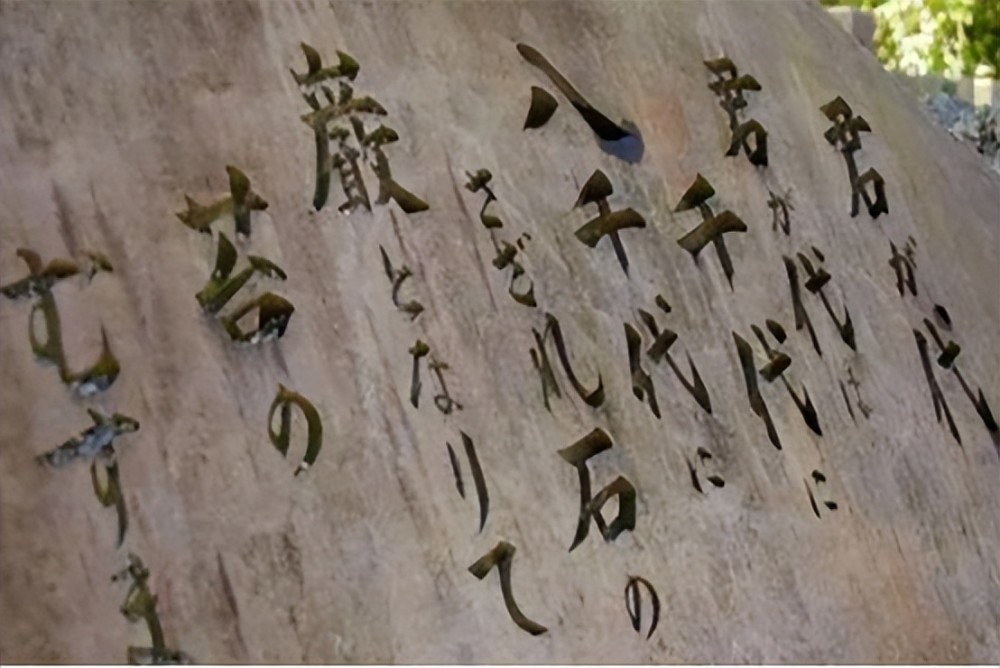 君が代
君が代は
千代に
八千代に
さざれ石の
巌となりて
苔の
むすま